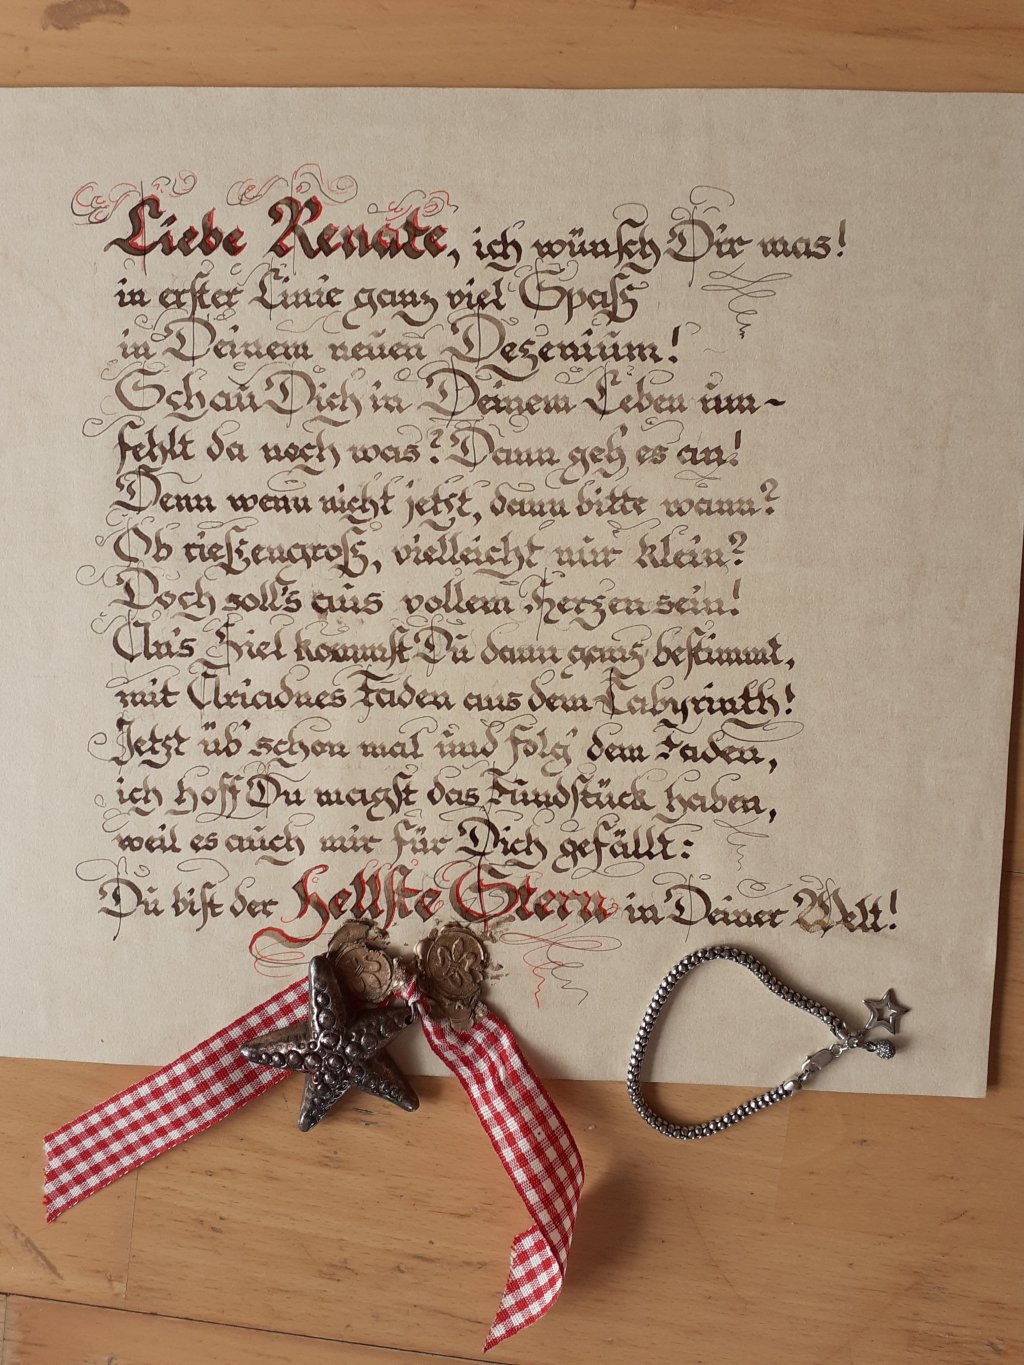 Liebe Renate, ich wünsch Dir was!
in erster Linie ganz viel Spaß
in Deinem neuen Dezenium!
Schau Dich in Deinem Leben um-
fehlt da noch was? Dann geh es an!
Denn wenn nicht jetzt, dann bitte wann?
Ob rießengroß, vielleicht nur klein?
Doch soll's aus vollem Herzen sein!
An's Ziel kommst Du dann ganz bestimmt,
mit Ariadnes Faden aus dem Labyrinth!
Jetzt üb' schon mal und folg' dem Faden,
ich hoff Du magst das Fundstück haben,
weil es auch mir für Dich gefällt:
Du bist der Hellste Stern in Deiner Welt!